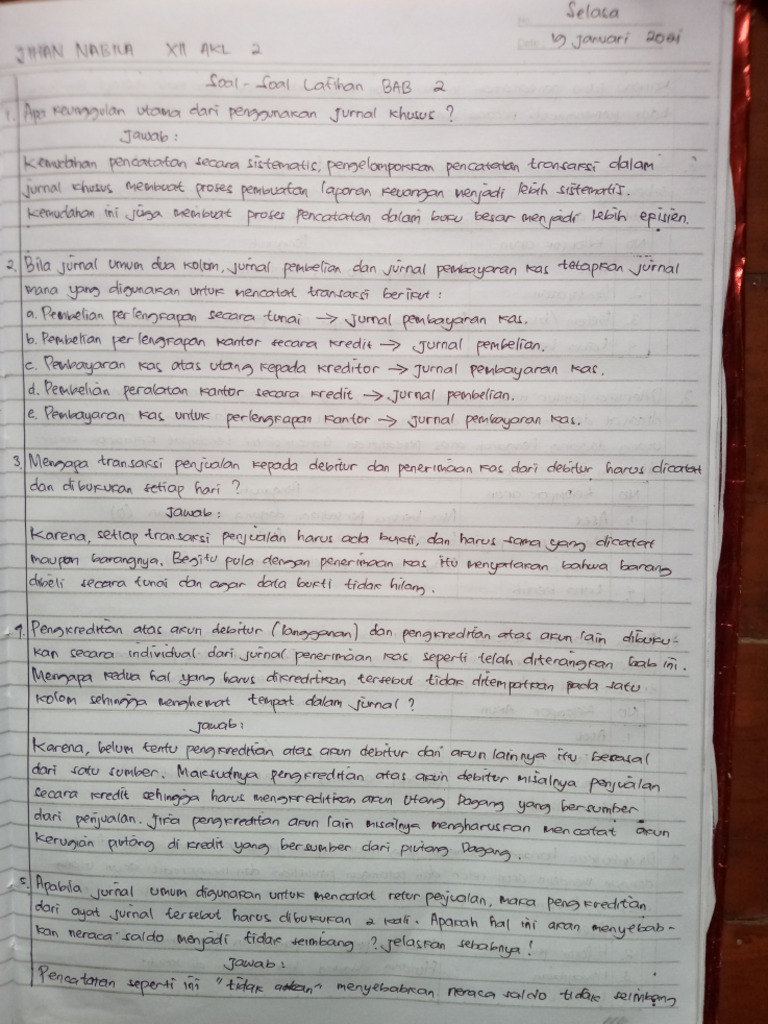 Selasa
19 Januari 2021
JIHAN NABILA XII AKL 2
Soal-Soal Latihan BAB 2
1. Apa keunggulan utama dari penggunakan jurnal khusus ?
Jawab :
Kemudahan pencatatan secara sistematis, pengelompokkan pencatatan transaksi dalam
jurnal khusus membuat proses pembuatan laporan keuangan menjadi lebih sistematis.
Kemudahan ini juga membuat proses pencatatan dalam buku besar menjadi lebih episien.
2. Bila jurnal umum dua kolom, jurnal pembelian dan jurnal pembayaran kas tetapkan jurnal
mana yang digunakan untuk mencatat transaksi berikut :
a. Pembelian perlengkapan secara tunai → jurnal pembayaran kas.
b. Pembelian perlengkapan kantor secara kredit → jurnal pembelian.
c. Pembayaran kas atas utang kepada kreditor → jurnal pembayaran kas.
d. Pembelian peralatan kantor secara kredit → jurnal pembelian.
e. Pembayaran kas untuk perlengkapan kantor → jurnal pembayaran kas.
3. Mengapa transaksi penjualan kepada debitur dan penerimaan kas dari debitur harus dicatat
dan dibukukan setiap hari ?
Jawab :
Karena, setiap transaksi penjualan harus ada bukti, dan harus sama yang dicatat
maupun barangnya. Begitu pula dengan penerimaan kas itu menyatakan bahwa barang
dibeli secara tunai dan agar data bukti tidak hilang.
4. Pengkreditan atas akun debitur (langganan) dan pengkreditan atas akun lain dibuku-
kan secara individual dari jurnal penerimaan kas seperti telah diterangkan bab ini.
Mengapa kedua hal yang harus dikreditkan tersebut tidak ditempatkan pada satu
kolom sehingga menghemat tempat dalam jurnal ?
Jawab :
Karena, belum tentu pengkreditan atas akun debitur dari akun lainnya itu berasal
dari satu sumber. Maksudnya pengkreditan atas akun debitur misalnya penjualan
secara kredit sehingga harus mengkreditkan akun Utang Dagang yang bersumber
dari penjualan. Jika pengkreditan akun lain misalnya mengharuskan mencatat akun
Kerugian piutang di kredit yang bersumber dari piutang Dagang.
5. Apabila jurnal umum digunakan untuk mencatat retur penjualan, maka pengkreditan
dari ayat jurnal tersebut harus dibukukan 2 kali. Apakah hal ini akan menyebab-
kan neraca saldo menjadi tidak seimbang ? jelaskan sebabnya !
Jawab :
Pencatatan seperti ini "tidak akan" menyebabkan neraca saldo tidak seimbang